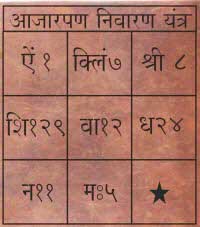 आजारपण निवारण यंत्र
ऐं १ क्लिं७ श्री ८
शि१२९ वा१२ ध२४
न११ मः५ ★